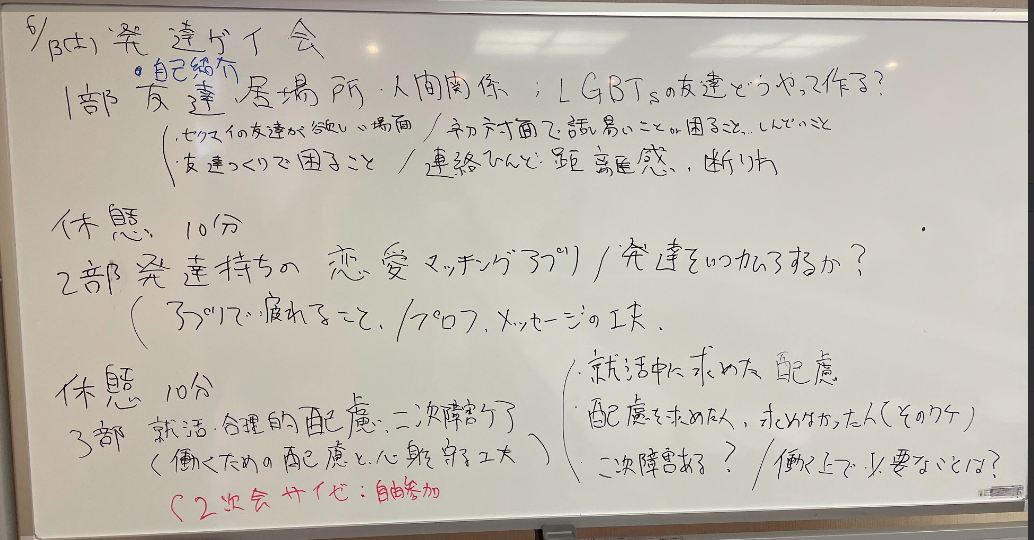 6/13(土) 発達ゲイ会
・自己紹介
1部 友達、居場所・人間関係 ; LGBTsの友達どうやって作る?
・セクマイの友達が欲しい場面 / 初対面で話し易いことor困ること、しんどいこと
・友達づくりで困ること / 連絡ひんど・距離感、断りわ
休憩 10分
2部 発達持ちの 恋愛マッチングアプリ / 発達をいつカムアするか?
(アプリで疲れること、/プロフ、メッセージの工夫、
休憩 10分
3部 就活・合理的配慮、二次障害ケア
(働くための配慮と心身を守る工夫)
・就活中に求めた配慮
・配慮を求めた人、求めなかった人(そのワケ)
・二次障害ある? /働く上で必要なことは?
(2次会 サイゼ:自由参加